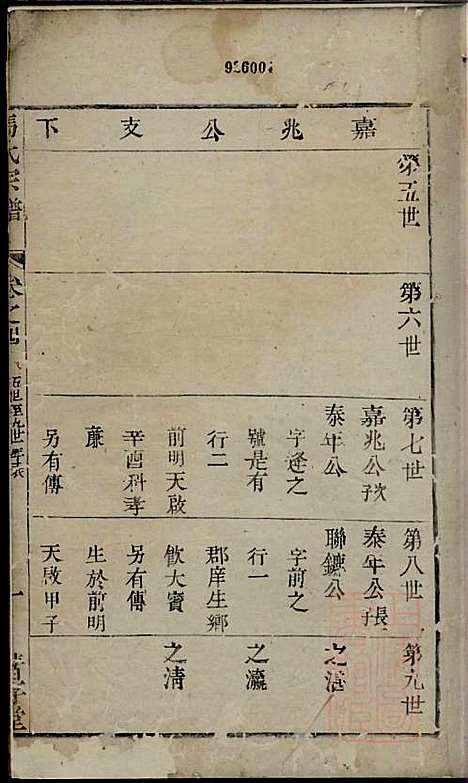 926004
嘉兆公支下
第五世
第六世
第七世
嘉兆公次子
泰年公
字逢之
號是有
行二
前明天啟
辛酉科孝
廉
另有傳
第八世
泰年公長子
聯鑣公
字前之
行一
郡庠生鄉
飲大賓
另有傳
生於前明
天啟甲子
第九世
之湛
之瀛
之清
氏宗譜
卷之
五世至九世
一